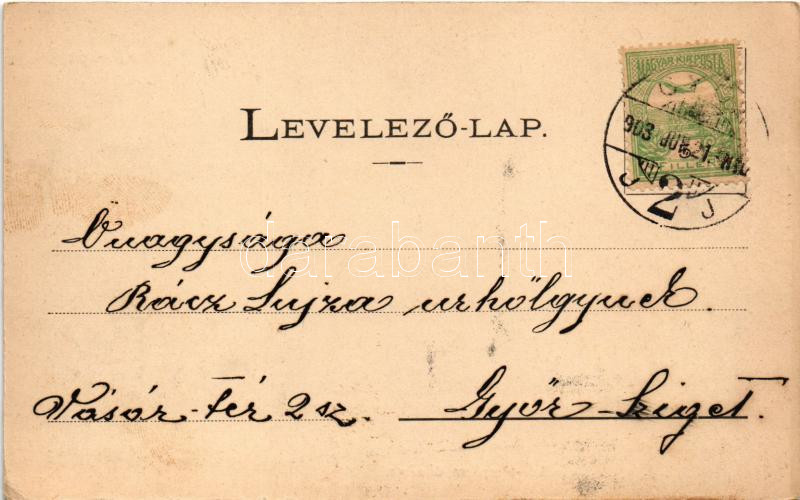 MAGYAR KIR. POSTA
FILLÉR
903 JUN 21.
2
LEVELEZŐ-LAP.
Őnagysága
darabanth
Rácz Lujza urhölgynek.
Vásár-tér 2 sz. Győr-Sziget.